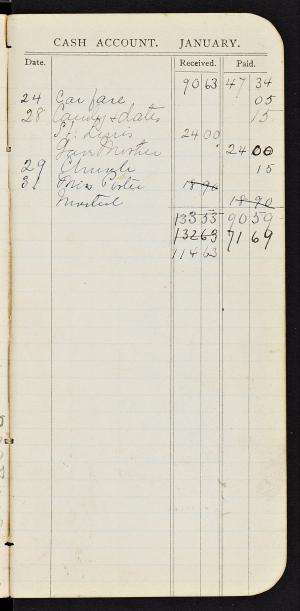 CASH ACCOUNT. JANUARY.
Date. Received. Paid.
90 63 47 34
24 Car fare 05
28 Candy & dates 15
St. Louis 24 00
Gave Mother 24 00
29 Church 15
31 Miss Porter 18 90
18 90
133 53 90 59
132 63 71 69
114 63